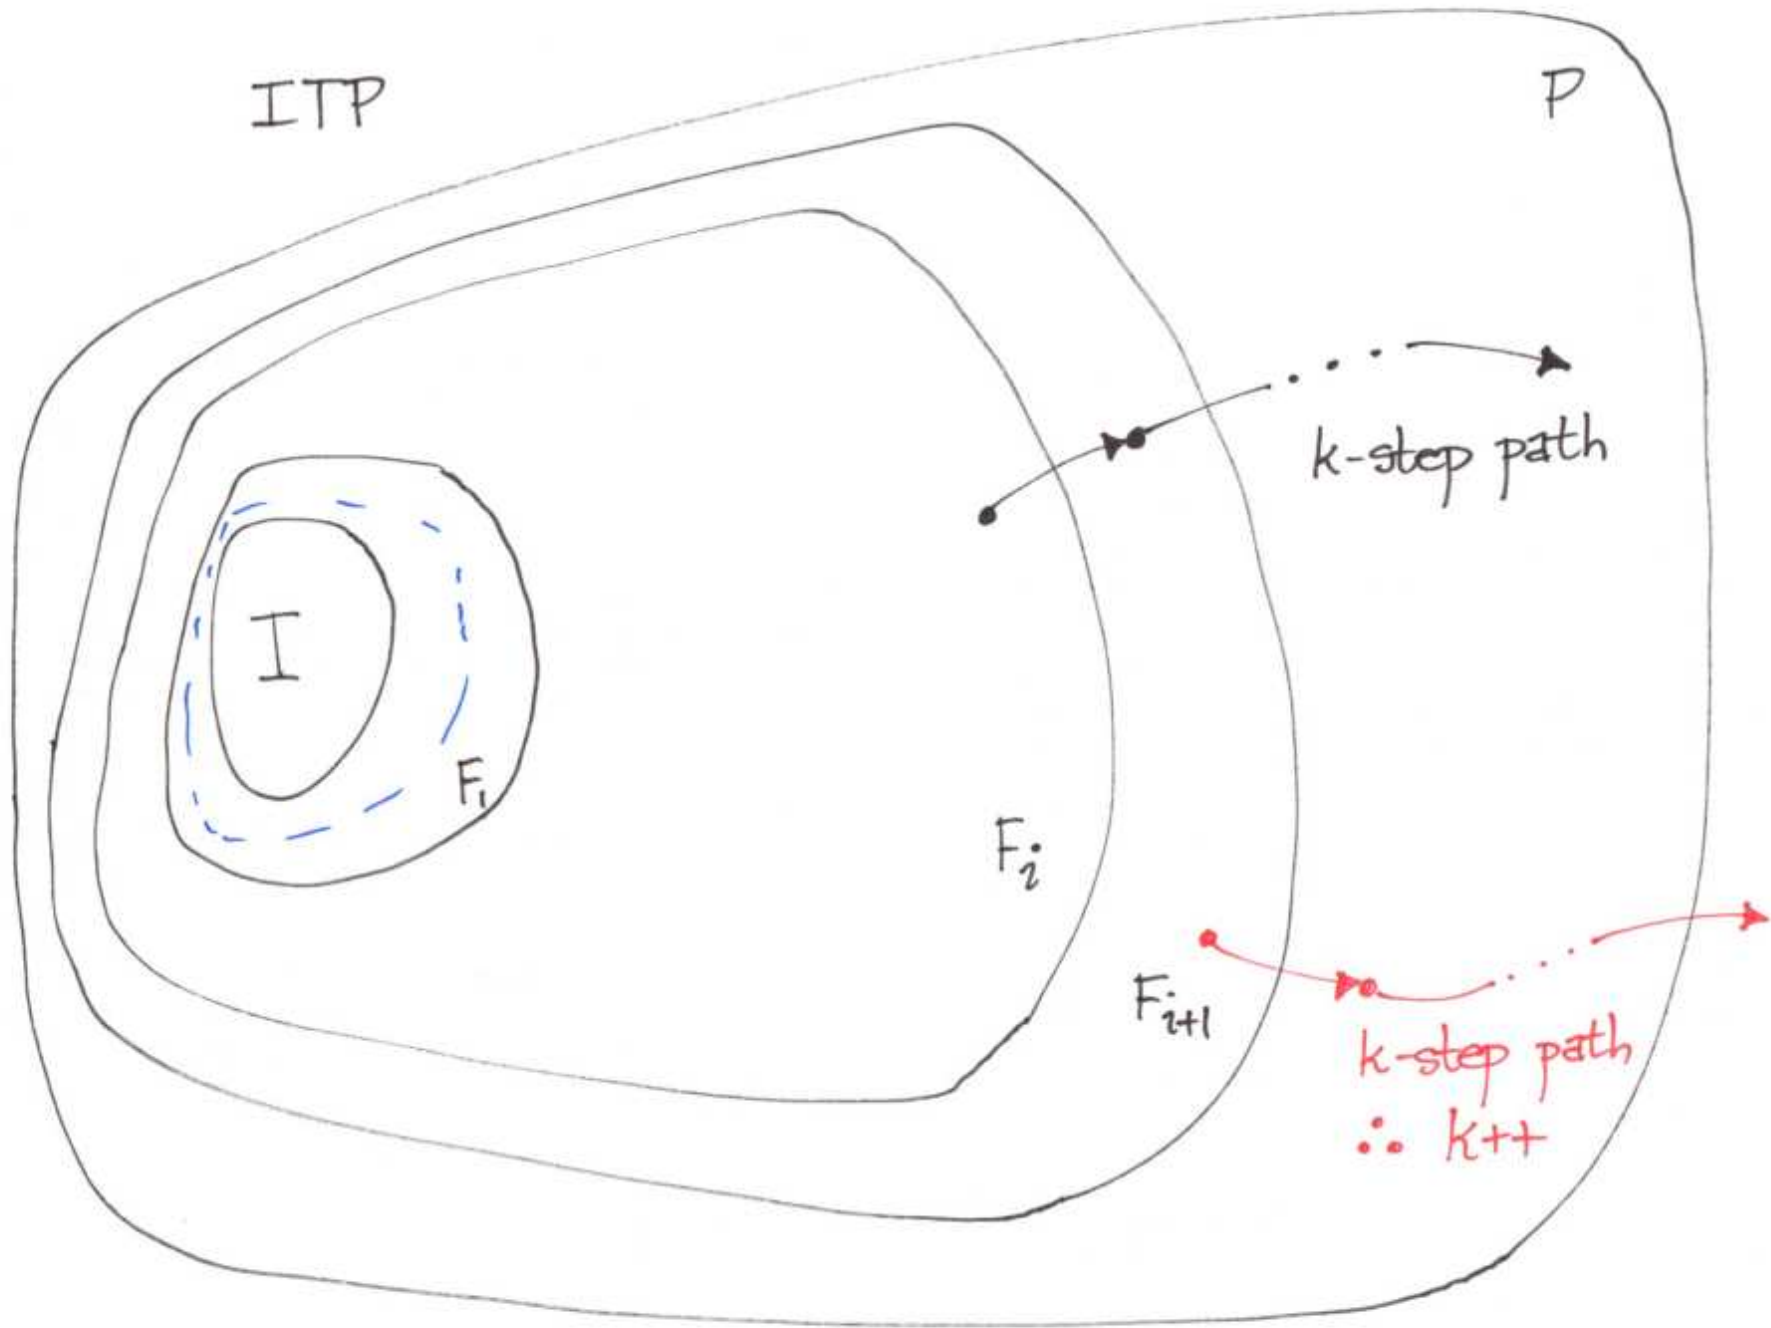 ITP
P
k-step path
I
F₁
Fᵢ
Fᵢ₊₁
k-step path
∴ k++